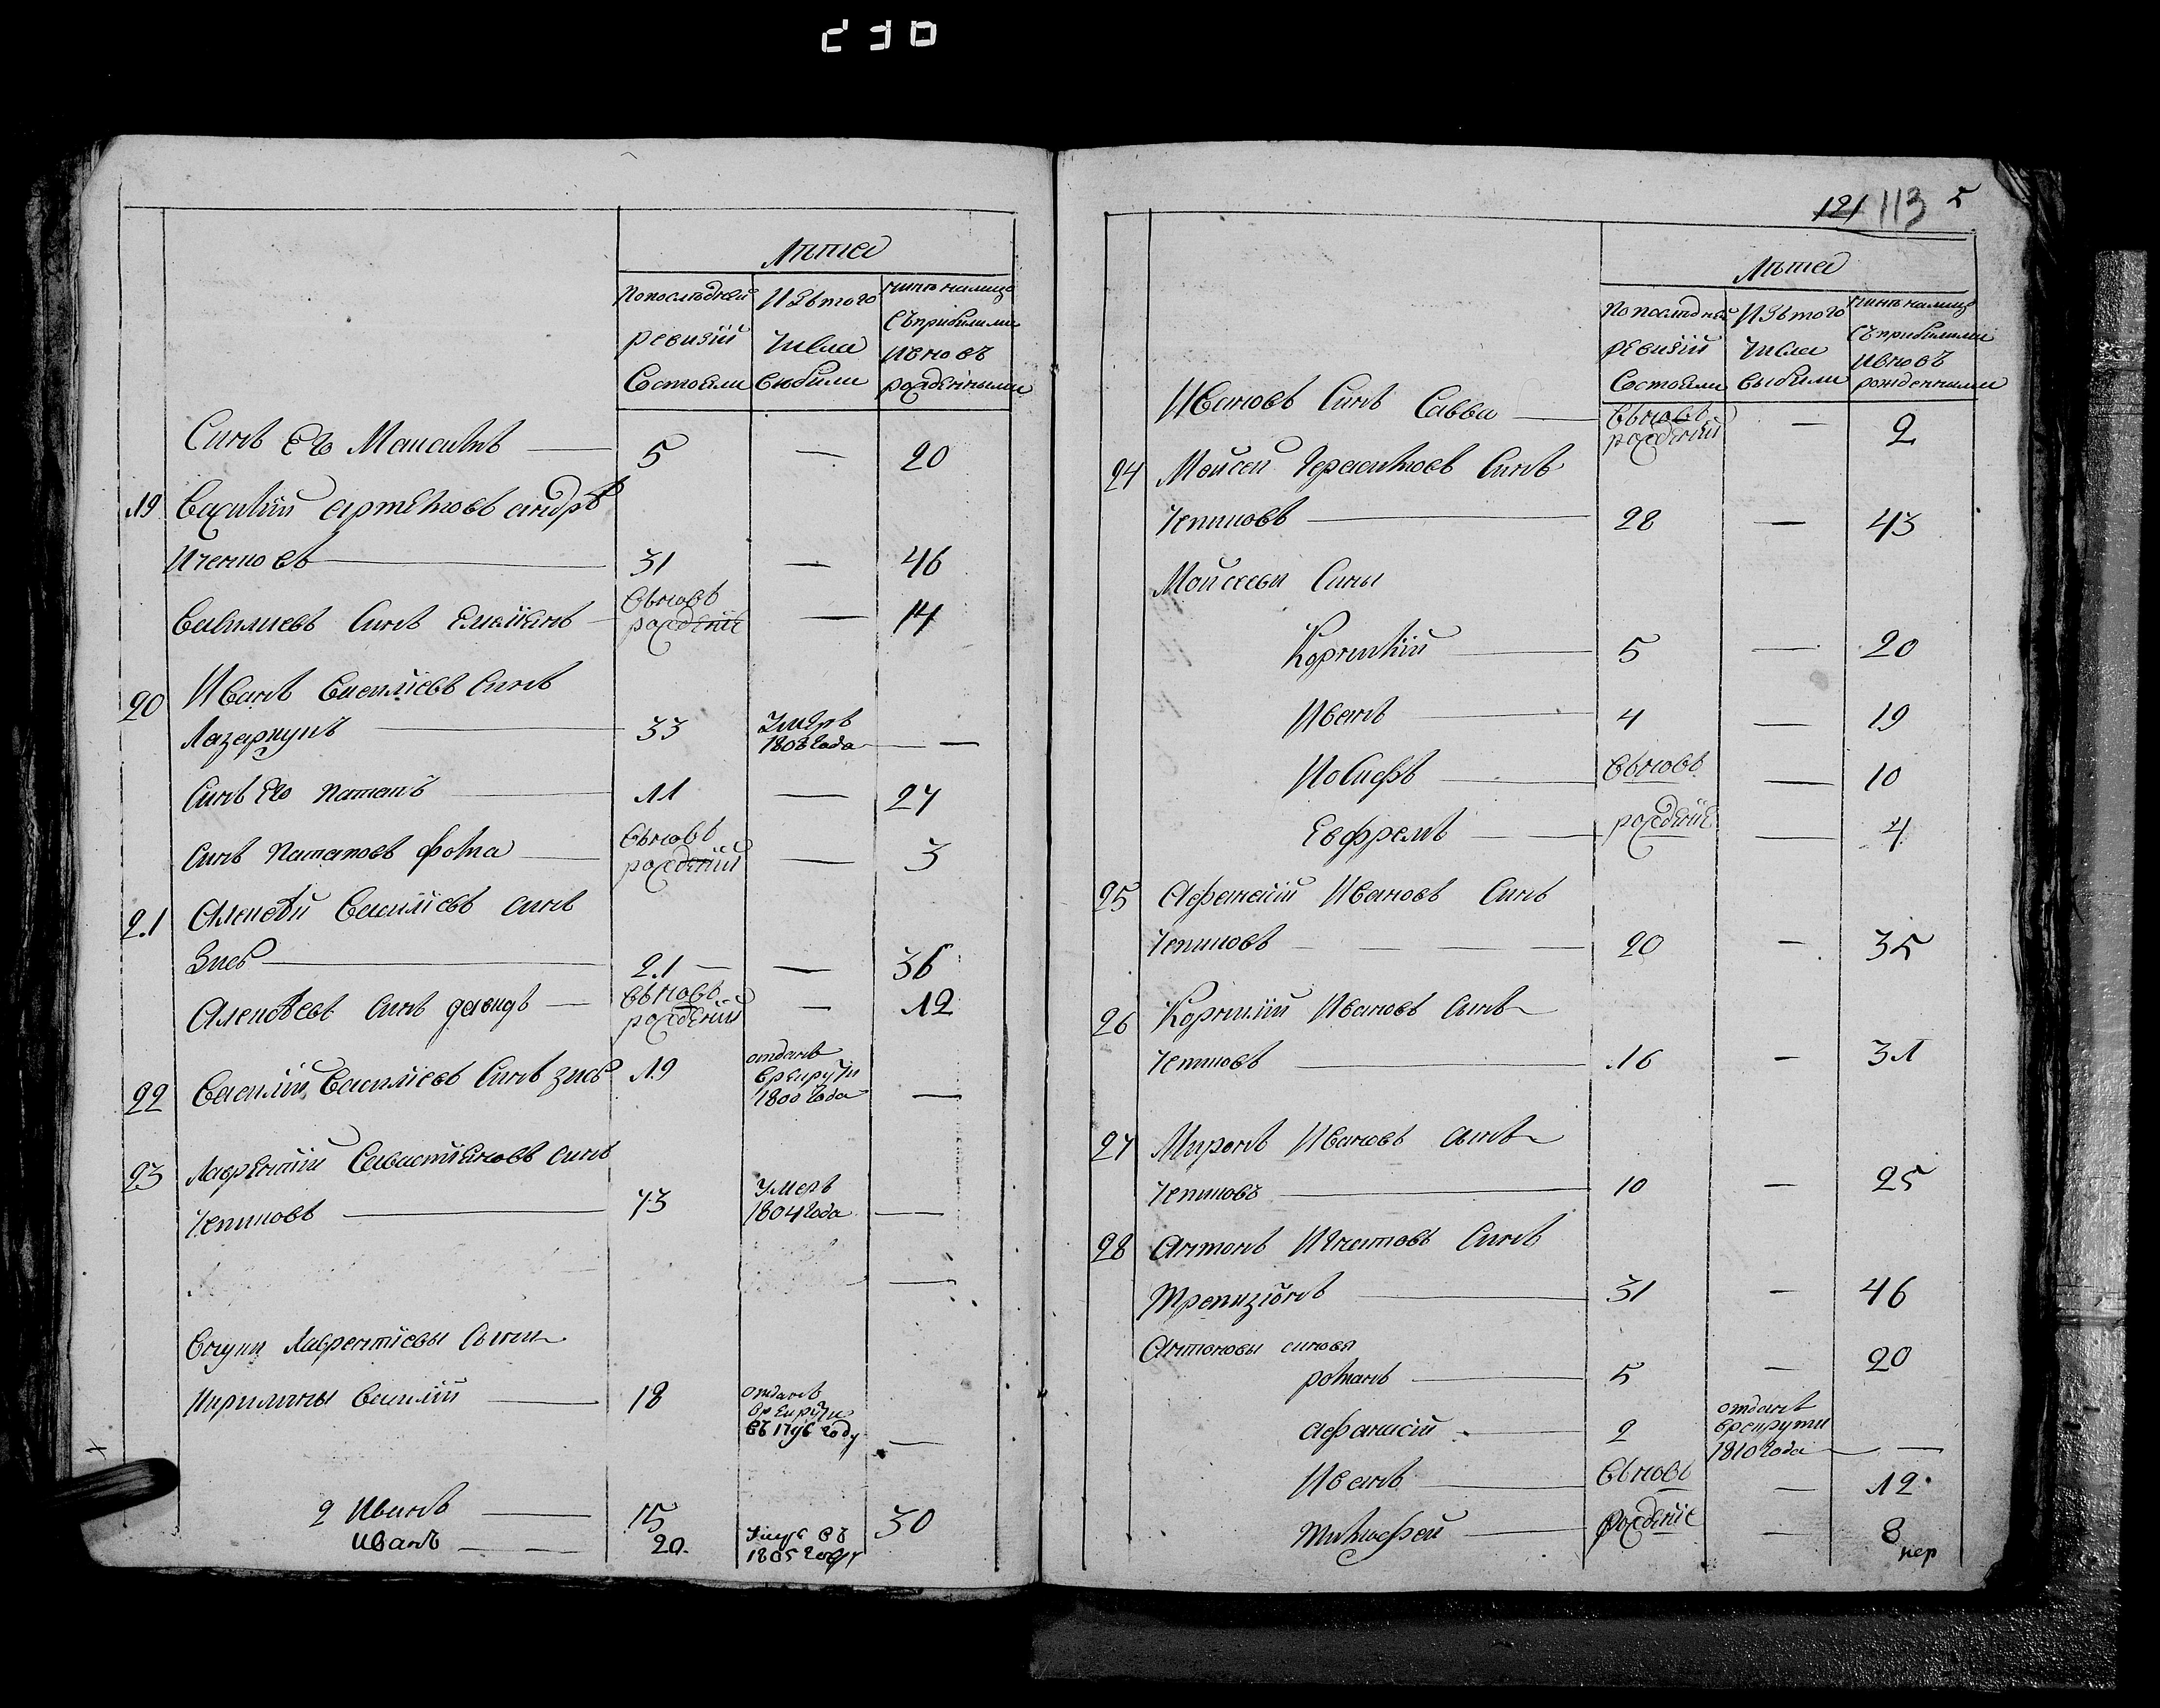 230
Лѣта
По последней ревизіи состояли
Изъ того числа выбыли
Нынѣ налицо съ прибылыми и вновь рожденными
Синъ Его Максимъ — 5 — 20
19 Василій Артемовъ
31 — 46
Василиевъ Синъ Емелїанъ — вновь рожденіе — 14
20 Иванъ Василіевъ Синъ
Лазаркунъ — 33 Умеръ 1808 года — —
Синъ Его Потапъ — 11 — 27
Синъ Потаповъ Фома — вновь рожденій — 3
21 Алексѣй Василіевъ Синъ
Зуев — 21 — — 36
Алексѣевъ Синъ Давидъ — вновь рожденій — 12
22 Василій Василіевъ Синъ Зуев 19 отданъ в рекруты 1800 года —
23 Лаврентій Севастіяновъ Синъ
Чепиновъ — 73 Умеръ 1804 года —
—
Внуки Лаврентіевы Сыны
Кирилины Василій — 18 отданъ в рекруты въ 1796 году —
2 Иванъ — 15 30
Иванъ — — 20 Умре въ 1805 году
121 113 5
Лѣта
По последней ревизіи состояли
Изъ того числа выбыли
Нынѣ налицо съ прибылыми и вновь рожденными
Ивановъ Синъ Савва — вновь рожденій — 2
24 Мойсей Герасимовъ Синъ
Чепиновъ — 28 — 43
Мойсееви Сины
Корнилїй — 5 — 20
Иванъ — 4 — 19
Иосифъ — вновь — 10
Евфремъ — рожденіе — 4
25 Афанасій Ивановъ Синъ
Чепиновъ — — — — 20 — 35
26 Корнилій Ивановъ Синъ
Чепиновъ — 16 — 31
27 Миронъ Ивановъ Синъ
Чепиновъ — 10 — 25
28 Антонъ Игнатовъ Синъ
31 — 46
Антоновы синовя
Романъ — 5 — 20
Афанасій — 2 отданъ в рекруты 1810 года — —
Иванъ — вновь — 12
Тимофей — рожденіе — 8
пер